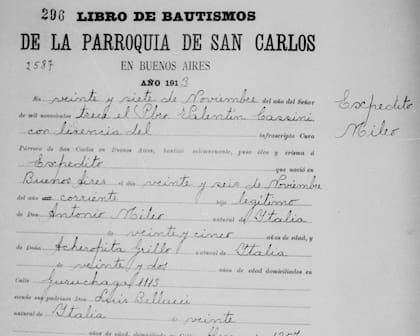 296 LIBRO DE BAUTISMOS
DE LA PARROQUIA DE SAN CARLOS
2587 EN BUENOS AIRES
AÑO 1913
En veinte y siete de Noviembre del año del Señor
de mil novecientos trece el Pbro Valentin Cassini
con licencia del infrascripto Cura
Párroco de San Carlos en Buenos Aires, bautizó solemnemente, puso óleo y crisma á
Expedito que nació en
Buenos Aires el día veinte y seis de Noviembre
del año corriente hijo legitimo
de Don Antonio Mileo natural de Italia
de veinte y cinco años de edad, y
de Doña Acheropita Grillo natural de Italia
de veinte y dos años de edad domiciliados en
Calle Gurruchaga 1113
siendo sus padrinos Don Luis Bellucci
natural de Italia de veinte
años de edad domiciliado en 1207
Expedito
Mileo